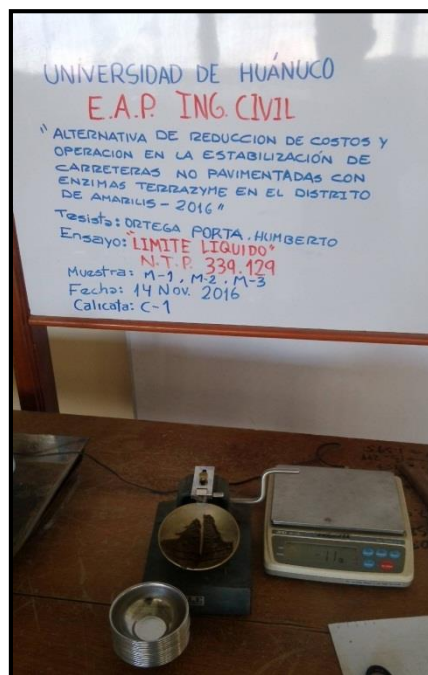 UNIVERSIDAD DE HUÁNUCO
E.A.P. ING. CIVIL
"ALTERNATIVA DE REDUCCION DE COSTOS Y
OPERACION EN LA ESTABILIZACIÓN DE
CARRETERAS NO PAVIMENTADAS CON
ENZIMAS TERRAZYME EN EL DISTRITO
DE AMARILIS - 2016"
Tesista: ORTEGA PORTA. HUMBERTO
Ensayo: "LIMITE LIQUIDO"
N.T.P. 339.129
Muestra: M-1, M-2, M-3
Fecha: 14 Nov. 2016
Calicata: C-1